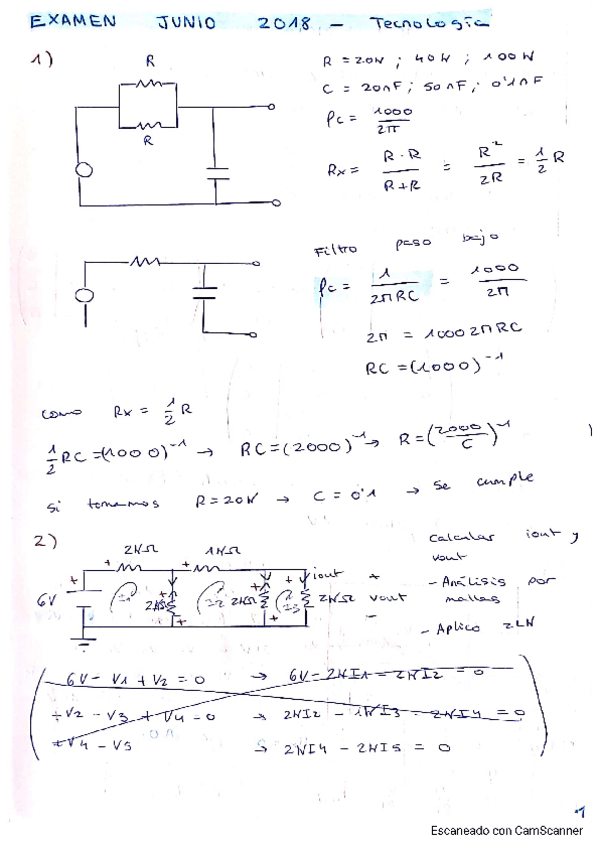 EXAMEN JUNIO 2018 - Tecnología
1)
R
R
R = 20K ; 40K ; 100K
C = 20nF ; 50nF ; 0'1nF
fc = 1000 / 2π
Rx = R·R / R+R = R² / 2R = 1/2 R
Filtro paso bajo
fc = 1 / 2πRC = 1000 / 2π
2π = 1000 2πRC
RC = (1000)⁻¹
como Rx = 1/2 R
1/2 RC = (1000)⁻¹ → RC = (2000)⁻¹ → R = (2000/C)⁻¹
si tomamos R = 20K → C = 0'1 → se cumple
2)
2KΩ
1KΩ
6V
2KΩ
2KΩ
2KΩ
iout
vout
I1
I2
I3
calcular iout y vout
- Análisis por mallas
- Aplico 2LK
6V - V1 + V2 = 0 → 6V - 2KI1 - 2KI2 = 0
+V2 - V3 + V4 = 0 → 2KI2 - 1KI3 - 2KI4 = 0
+V4 - V5 → 2KI4 - 2KI5 = 0
1
Escaneado con CamScanner